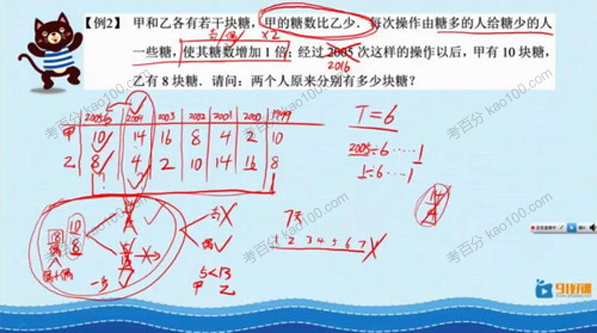 【例2】 甲和乙各有若干块糖，甲的糖数比乙少．每次操作由糖多的人给糖少的人
一些糖，使其糖数增加1倍；经过2005次这样的操作以后，甲有10块糖，
乙有8块糖．请问：两个人原来分别有多少块糖？
×2
2016
2005 2004 2003 2002 2001 2000 1999
甲 10 14 16 8 4 2 10
乙 8 4 2 10 14 16 8
T=6
2005÷6……1
1÷6……1
18 10
8
偶
偶+偶
一步
奇×
偶✓
5<13
甲 乙
7天
1 2 3 4 5 6 7
14
4
91好课
考百分 kao100.com
考百分 kao100.com
考百分 kao100.com
考百分 kao100.com